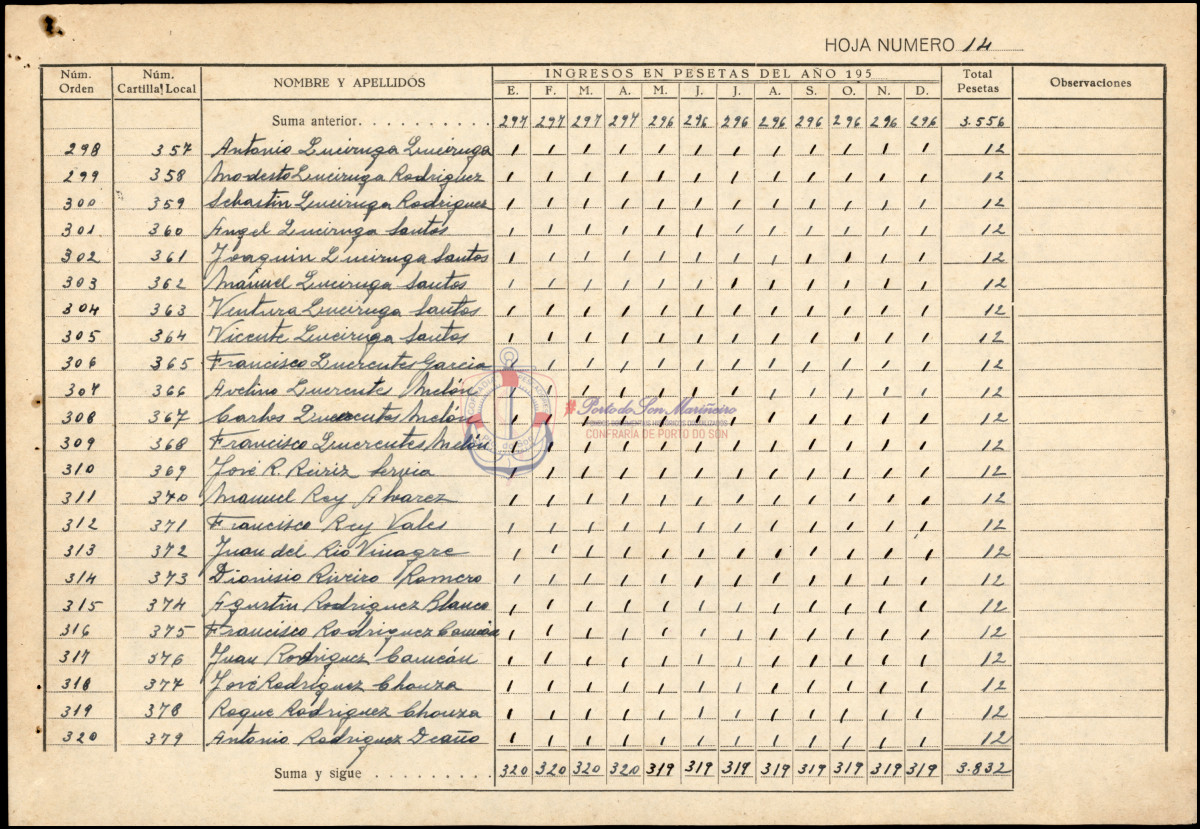 HOJA NUMERO 14
Núm. Orden Núm. Cartilla Local NOMBRE Y APELLIDOS INGRESOS EN PESETAS DEL AÑO 195 Total Pesetas Observaciones
E. F. M. A. M. J. J. A. S. O. N. D.
Suma anterior. . . . . . . . . . 297 297 297 297 296 296 296 296 296 296 296 296 3.556
298 357 Antonio Luciruga Luciruga 1 1 1 1 1 1 1 1 1 1 1 1 12
299 358 Modesto Luciruga Rodriguez 1 1 1 1 1 1 1 1 1 1 1 1 12
300 359 Sebastin Luciruga Rodriguez 1 1 1 1 1 1 1 1 1 1 1 1 12
301 360 Angel Luciruga Santos 1 1 1 1 1 1 1 1 1 1 1 1 12
302 361 Joaquin Luciruga Santos 1 1 1 1 1 1 1 1 1 1 1 1 12
303 362 Manuel Luciruga Santos 1 1 1 1 1 1 1 1 1 1 1 1 12
304 363 Ventura Luciruga Santos 1 1 1 1 1 1 1 1 1 1 1 1 12
305 364 Vicente Luciruga Santos 1 1 1 1 1 1 1 1 1 1 1 1 12
306 365 Francisco Garcia 1 1 1 1 1 1 1 1 1 1 1 1 12
307 366 Avelino Melón 1 1 1 1 1 1 1 1 1 1 1 1 12
308 367 Carlos Melón 1 1 1 1 1 1 1 1 1 1 1 1 12
309 368 Francisco Melón 1 1 1 1 1 1 1 1 1 1 1 1 12
310 369 José R. Reiriz Servia 1 1 1 1 1 1 1 1 1 1 1 1 12
311 370 Manuel Rey Alvarez 1 1 1 1 1 1 1 1 1 1 1 1 12
312 371 Francisco Rey Vales 1 1 1 1 1 1 1 1 1 1 1 1 12
313 372 Juan del Rio Vinagre 1 1 1 1 1 1 1 1 1 1 1 1 12
314 373 Dionisio Riveiro Romero 1 1 1 1 1 1 1 1 1 1 1 1 12
315 374 Agustin Rodriguez Blanco 1 1 1 1 1 1 1 1 1 1 1 1 12
316 375 Francisco Rodriguez 1 1 1 1 1 1 1 1 1 1 1 1 12
317 376 Juan Rodriguez 1 1 1 1 1 1 1 1 1 1 1 1 12
318 377 José Rodriguez Chouza 1 1 1 1 1 1 1 1 1 1 1 1 12
319 378 Roque Rodriguez Chouza 1 1 1 1 1 1 1 1 1 1 1 1 12
320 379 Antonio Rodriguez Deaño 1 1 1 1 1 1 1 1 1 1 1 1 12
Suma y sigue . . . . . . . . . 320 320 320 320 319 319 319 319 319 319 319 319 3.832
#Porto do Son Mariñeiro
CONFRARÍA DE PORTO DO SON